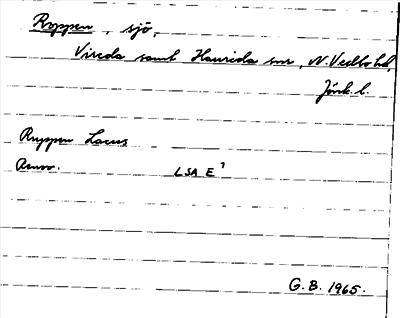 Ruppen, sjö,
Vireda samt Haurida snr, N. Vedbo hd,
Jönk. l.
Ruppen Lacus
LSA E 7
G.B. 1965.